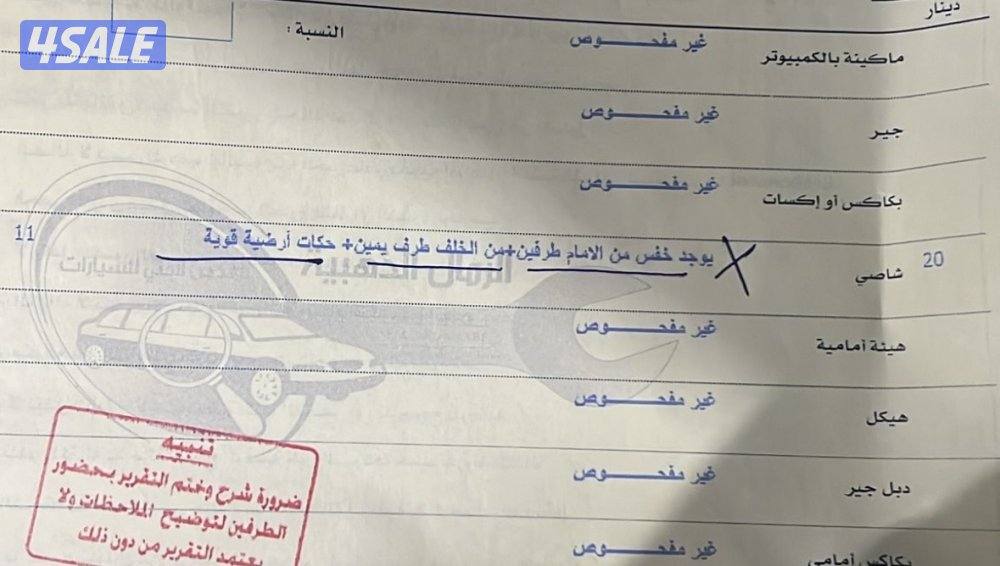 4SALE
دينار
ماكينة بالكمبيوتر غير مفحـــــوص النسبة :
جير غير مفحـــــوص
بكاكس أو إكسات غير مفحـــــوص
20 شاصي X يوجد خفس من الامام طرفين+من الخلف طرف يمين+ حكات أرضية قوية 11
الرمال الذهبية
هيئة أمامية غير مفحـــــوص
هيكل غير مفحـــــوص
دبل جير غير مفحـــــوص
بكاكس أمامي غير مفحـــــوص
تنبيه
ضرورة شرح وختم التقرير بحضور
الطرفين لتوضيح الملاحظات ولا
يعتمد التقرير من دون ذلك